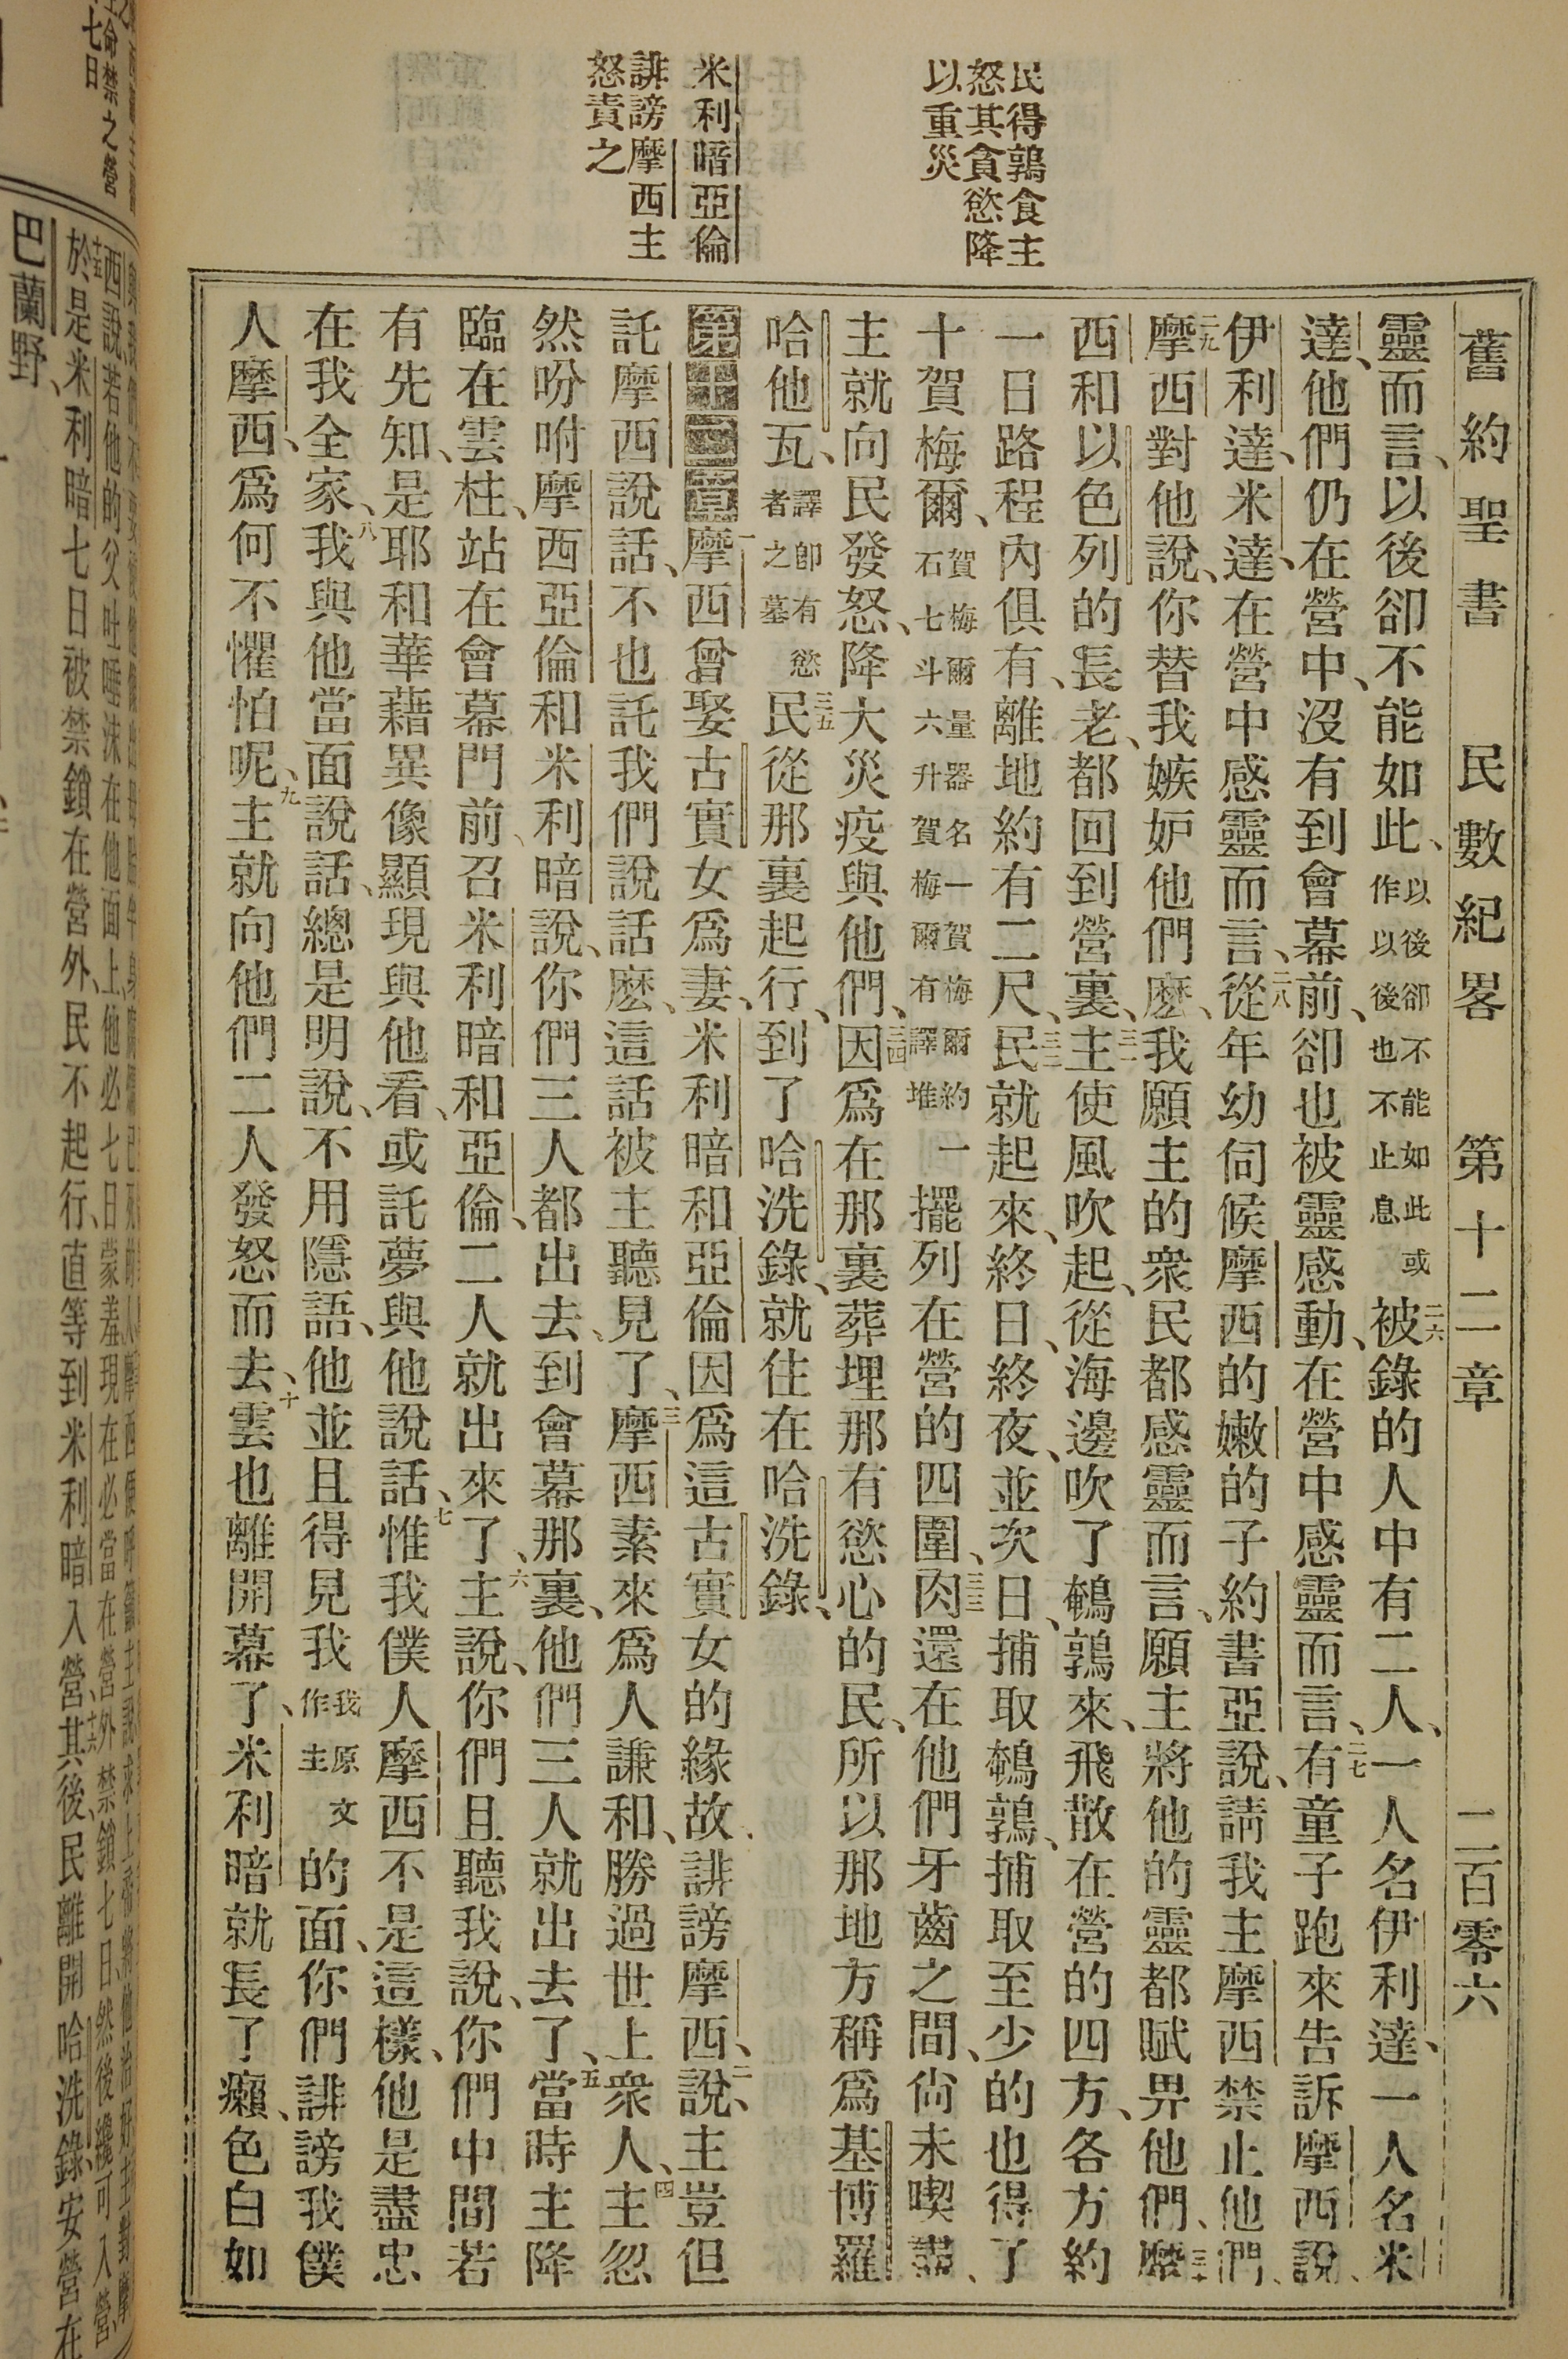 舊約聖書 民數紀畧 第十二章 二百零六
民得鶉食主
怒其貪慾降
以重災
米利暗亞倫
誹謗摩西主
怒責之
靈而言、以後卻不能如此、以後卻不能如此或作以後也不止息二六被錄的人中有二人、一人名伊利達、一人名米
達、他們仍在營中、沒有到會幕前、卻也被靈感動、在營中感靈而言、二七有童子跑來告訴摩西說、
伊利達、米達、在營中感靈而言、二八從年幼伺候摩西的嫩的子約書亞說、請我主摩西禁止他們、
二九摩西對他說、你替我嫉妒他們麽、我願主的衆民都感靈而言、願主將他的靈都賦畀他們、三十摩
西和以色列的長老、都回到營裏、三一主使風吹起、從海邊吹了鵪鶉來、飛散在營的四方、各方約
一日路程內俱有、離地約有二尺、三二民就起來、終日、終夜、並次日、捕取鵪鶉、捕取至少的也得了
十賀梅爾、賀梅爾量器名一賀梅爾約一石七斗六升賀梅爾有譯堆擺列在營的四圍、三三肉還在他們牙齒之間、尙未喫盡、
主就向民發怒、降大災疫與他們、三四因爲在那裏葬埋那有慾心的民、所以那地方稱爲基博羅
哈他瓦、譯卽有慾者之墓三五民從那裏起行、到了哈洗錄、就住在哈洗錄、
第十二章一摩西曾娶古實女爲妻、米利暗和亞倫因爲這古實女的緣故、誹謗摩西、二說、主豈但
託摩西說話、不也託我們說話麽、這話被主聽見了、三摩西素來爲人謙和、勝過世上衆人、四主忽
然吩咐摩西亞倫和米利暗說、你們三人都出去、到會幕那裏、他們三人就出去了、五當時主降
臨在雲柱、站在會幕門前、召米利暗和亞倫、二人就出來了、六主說、你們且聽我說、你們中間若
有先知、是耶和華藉異像顯現與他看、或託夢與他說話、七惟我僕人摩西不是這樣、他是盡忠
在我全家、八我與他當面說話、總是明說、不用隱語、他並且得見我我原文作主的面、你們誹謗我僕
人摩西、爲何不懼怕呢、九主就向他們二人發怒而去、十雲也離開幕了、米利暗就長了癩、色白如
於是米利暗七日被禁鎖在營外、民不起行、直等到米利暗入營、其後、民離開哈洗錄、安營在
巴蘭野、